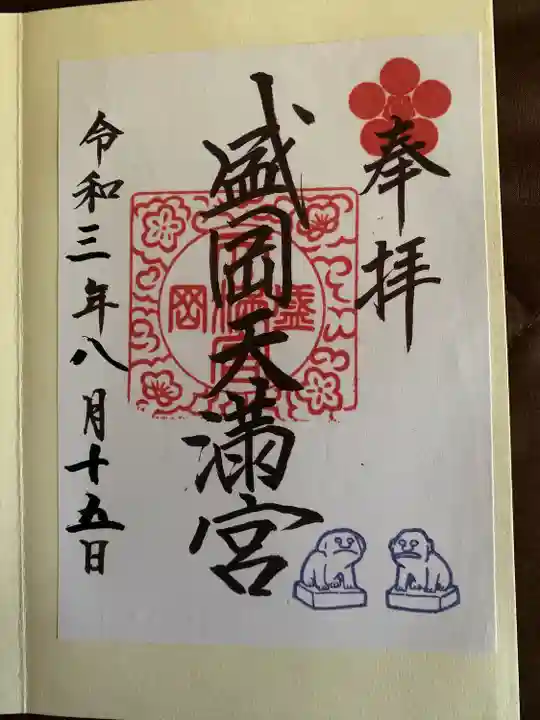 奉拝
盛岡天満宮
盛岡
令和三年八月十五日